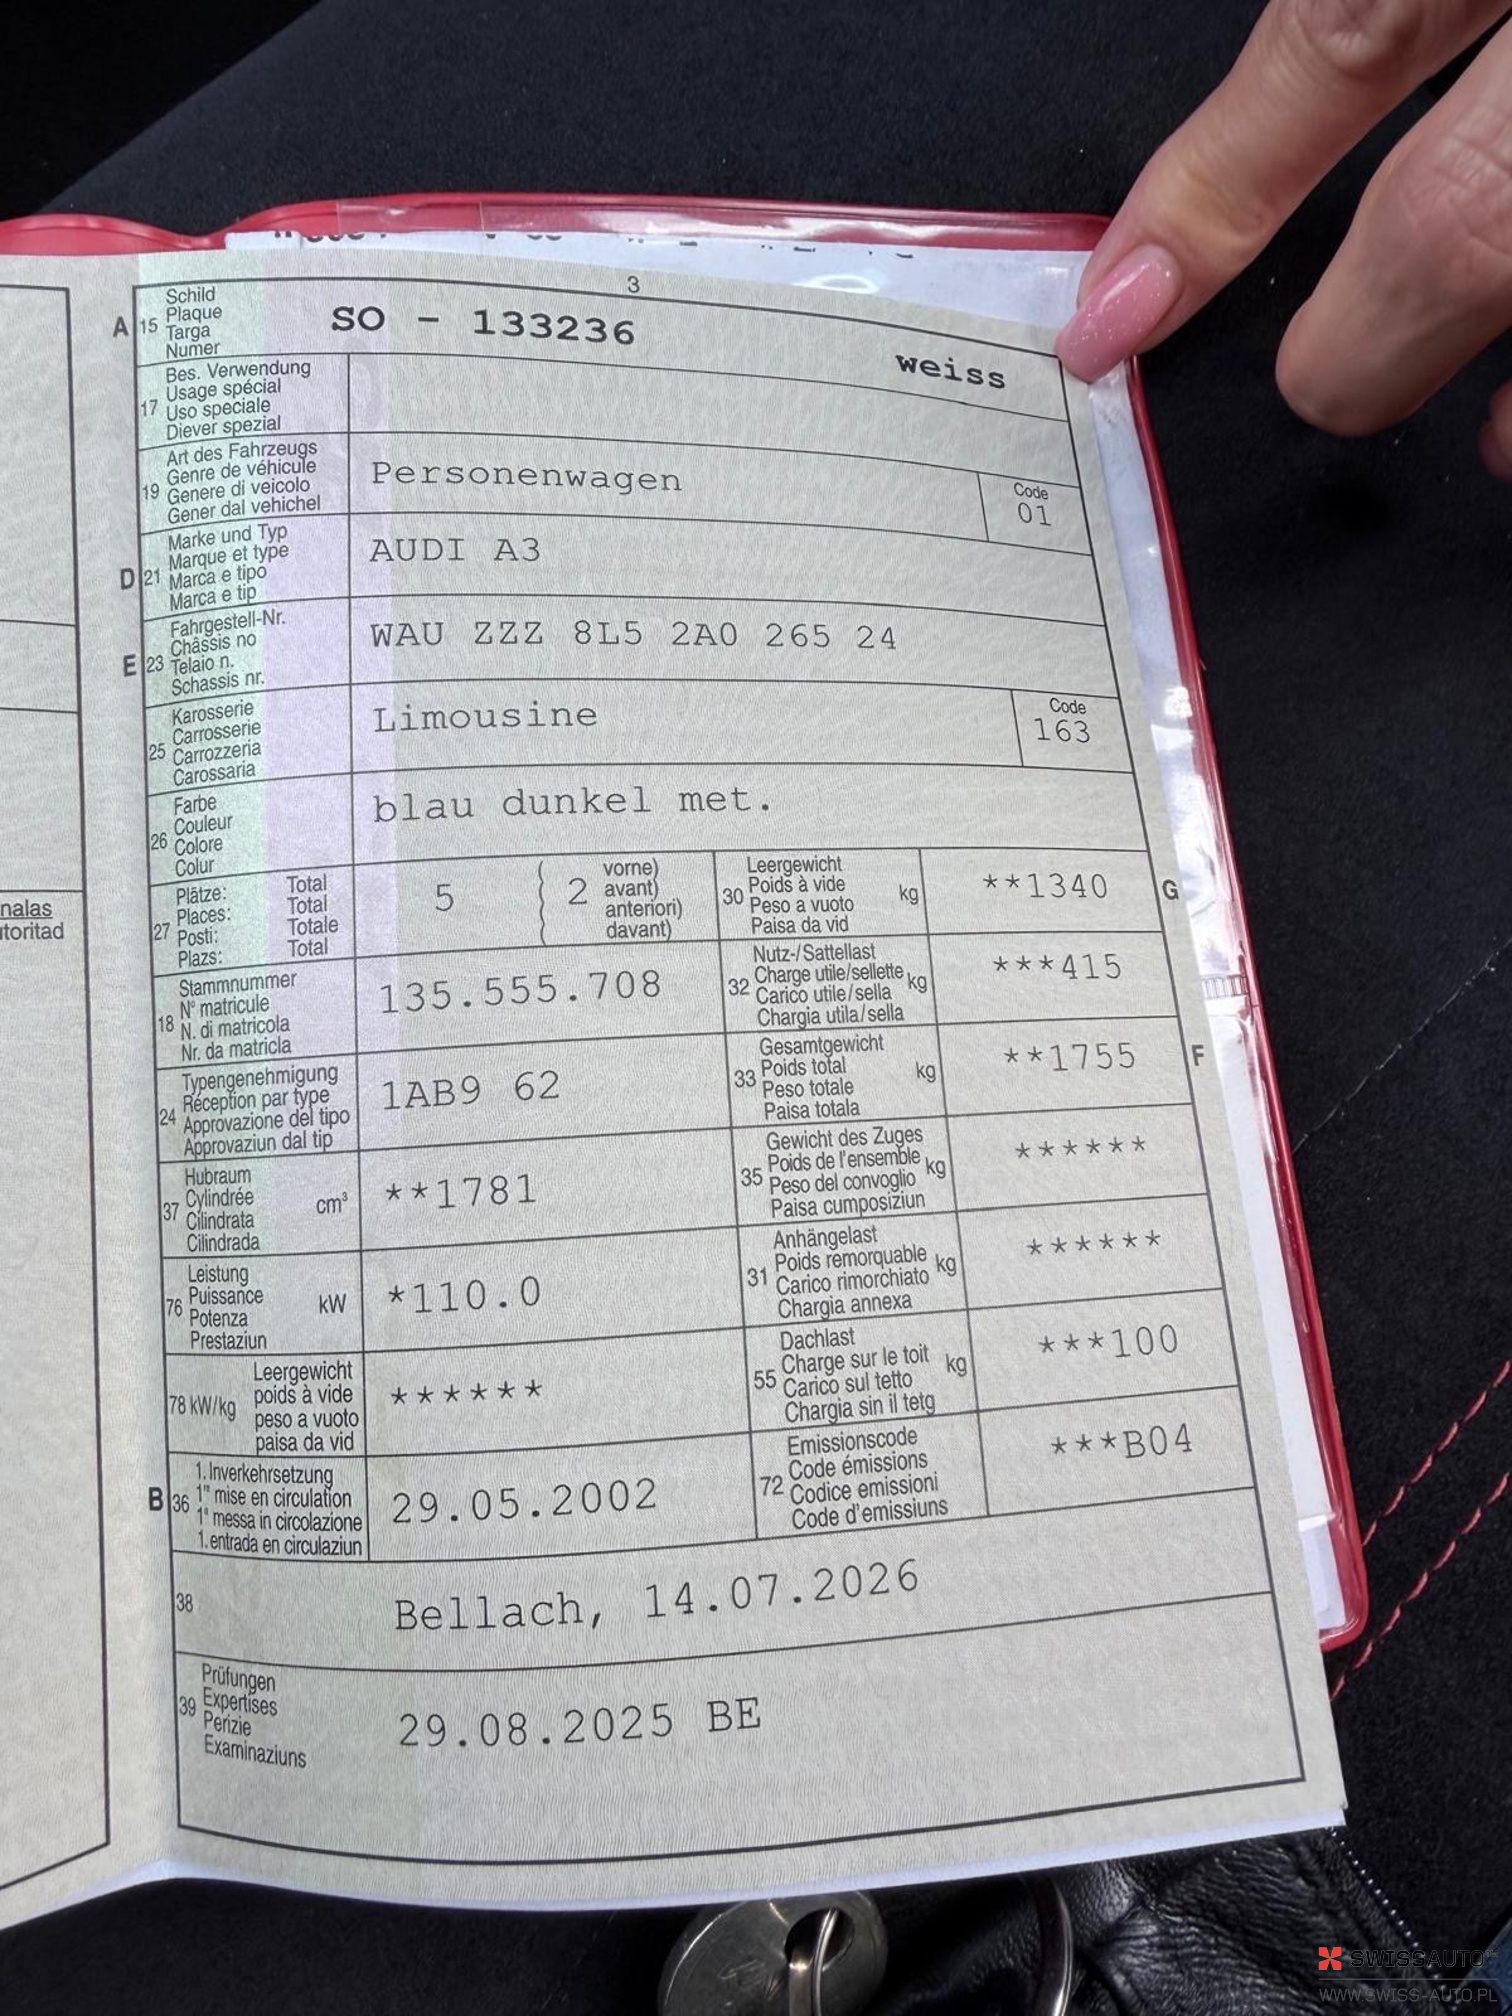 3
A 15 Schild
Plaque
Targa
Numer
SO - 133236
weiss
17 Bes. Verwendung
Usage spécial
Uso speciale
Diever spezial
19 Art des Fahrzeugs
Genre de véhicule
Genere di veicolo
Gener dal vehichel
Personenwagen
Code
01
D 21 Marke und Typ
Marque et type
Marca e tipo
Marca e tip
AUDI A3
E 23 Fahrgestell-Nr.
Châssis no
Telaio n.
Schassis nr.
WAU ZZZ 8L5 2A0 265 24
25 Karosserie
Carrosserie
Carrozzeria
Carossaria
Limousine
Code
163
26 Farbe
Couleur
Colore
Colur
blau dunkel met.
27 Plätze: Total
Places: Total
Posti: Totale
Plazs: Total
5 ( 2 vorne)
avant)
anteriori)
davant)
30 Leergewicht
Poids à vide
Peso a vuoto
Paisa da vid
kg
**1340
G
18 Stammnummer
N° matricule
N. di matricola
Nr. da matricla
135.555.708
32 Nutz-/Sattellast
Charge utile/sellette
Carico utile/sella
Chargia utila/sella
kg
***415
24 Typengenehmigung
Réception par type
Approvazione del tipo
Approvaziun dal tip
1AB9 62
33 Gesamtgewicht
Poids total
Peso totale
Paisa totala
kg
**1755
F
37 Hubraum
Cylindrée
Cilindrata
Cilindrada
cm³
**1781
35 Gewicht des Zuges
Poids de l'ensemble
Peso del convoglio
Paisa cumposiziun
kg
******
76 Leistung
Puissance
Potenza
Prestaziun
kW
*110.0
31 Anhängelast
Poids remorquable
Carico rimorchiato
Chargia annexa
kg
******
78 kW/kg Leergewicht
poids à vide
peso a vuoto
paisa da vid
******
55 Dachlast
Charge sur le toit
Carico sul tetto
Chargia sin il tetg
kg
***100
B 36 1. Inverkehrsetzung
1re mise en circulation
1a messa in circolazione
1. entrada en circulaziun
29.05.2002
72 Emissionscode
Code émissions
Codice emissioni
Code d'emissiuns
***B04
38
Bellach, 14.07.2026
39 Prüfungen
Expertises
Perizie
Examinaziuns
29.08.2025 BE
nalas
toritad
SWISSAUTO
WWW.SWISS-AUTO.PL